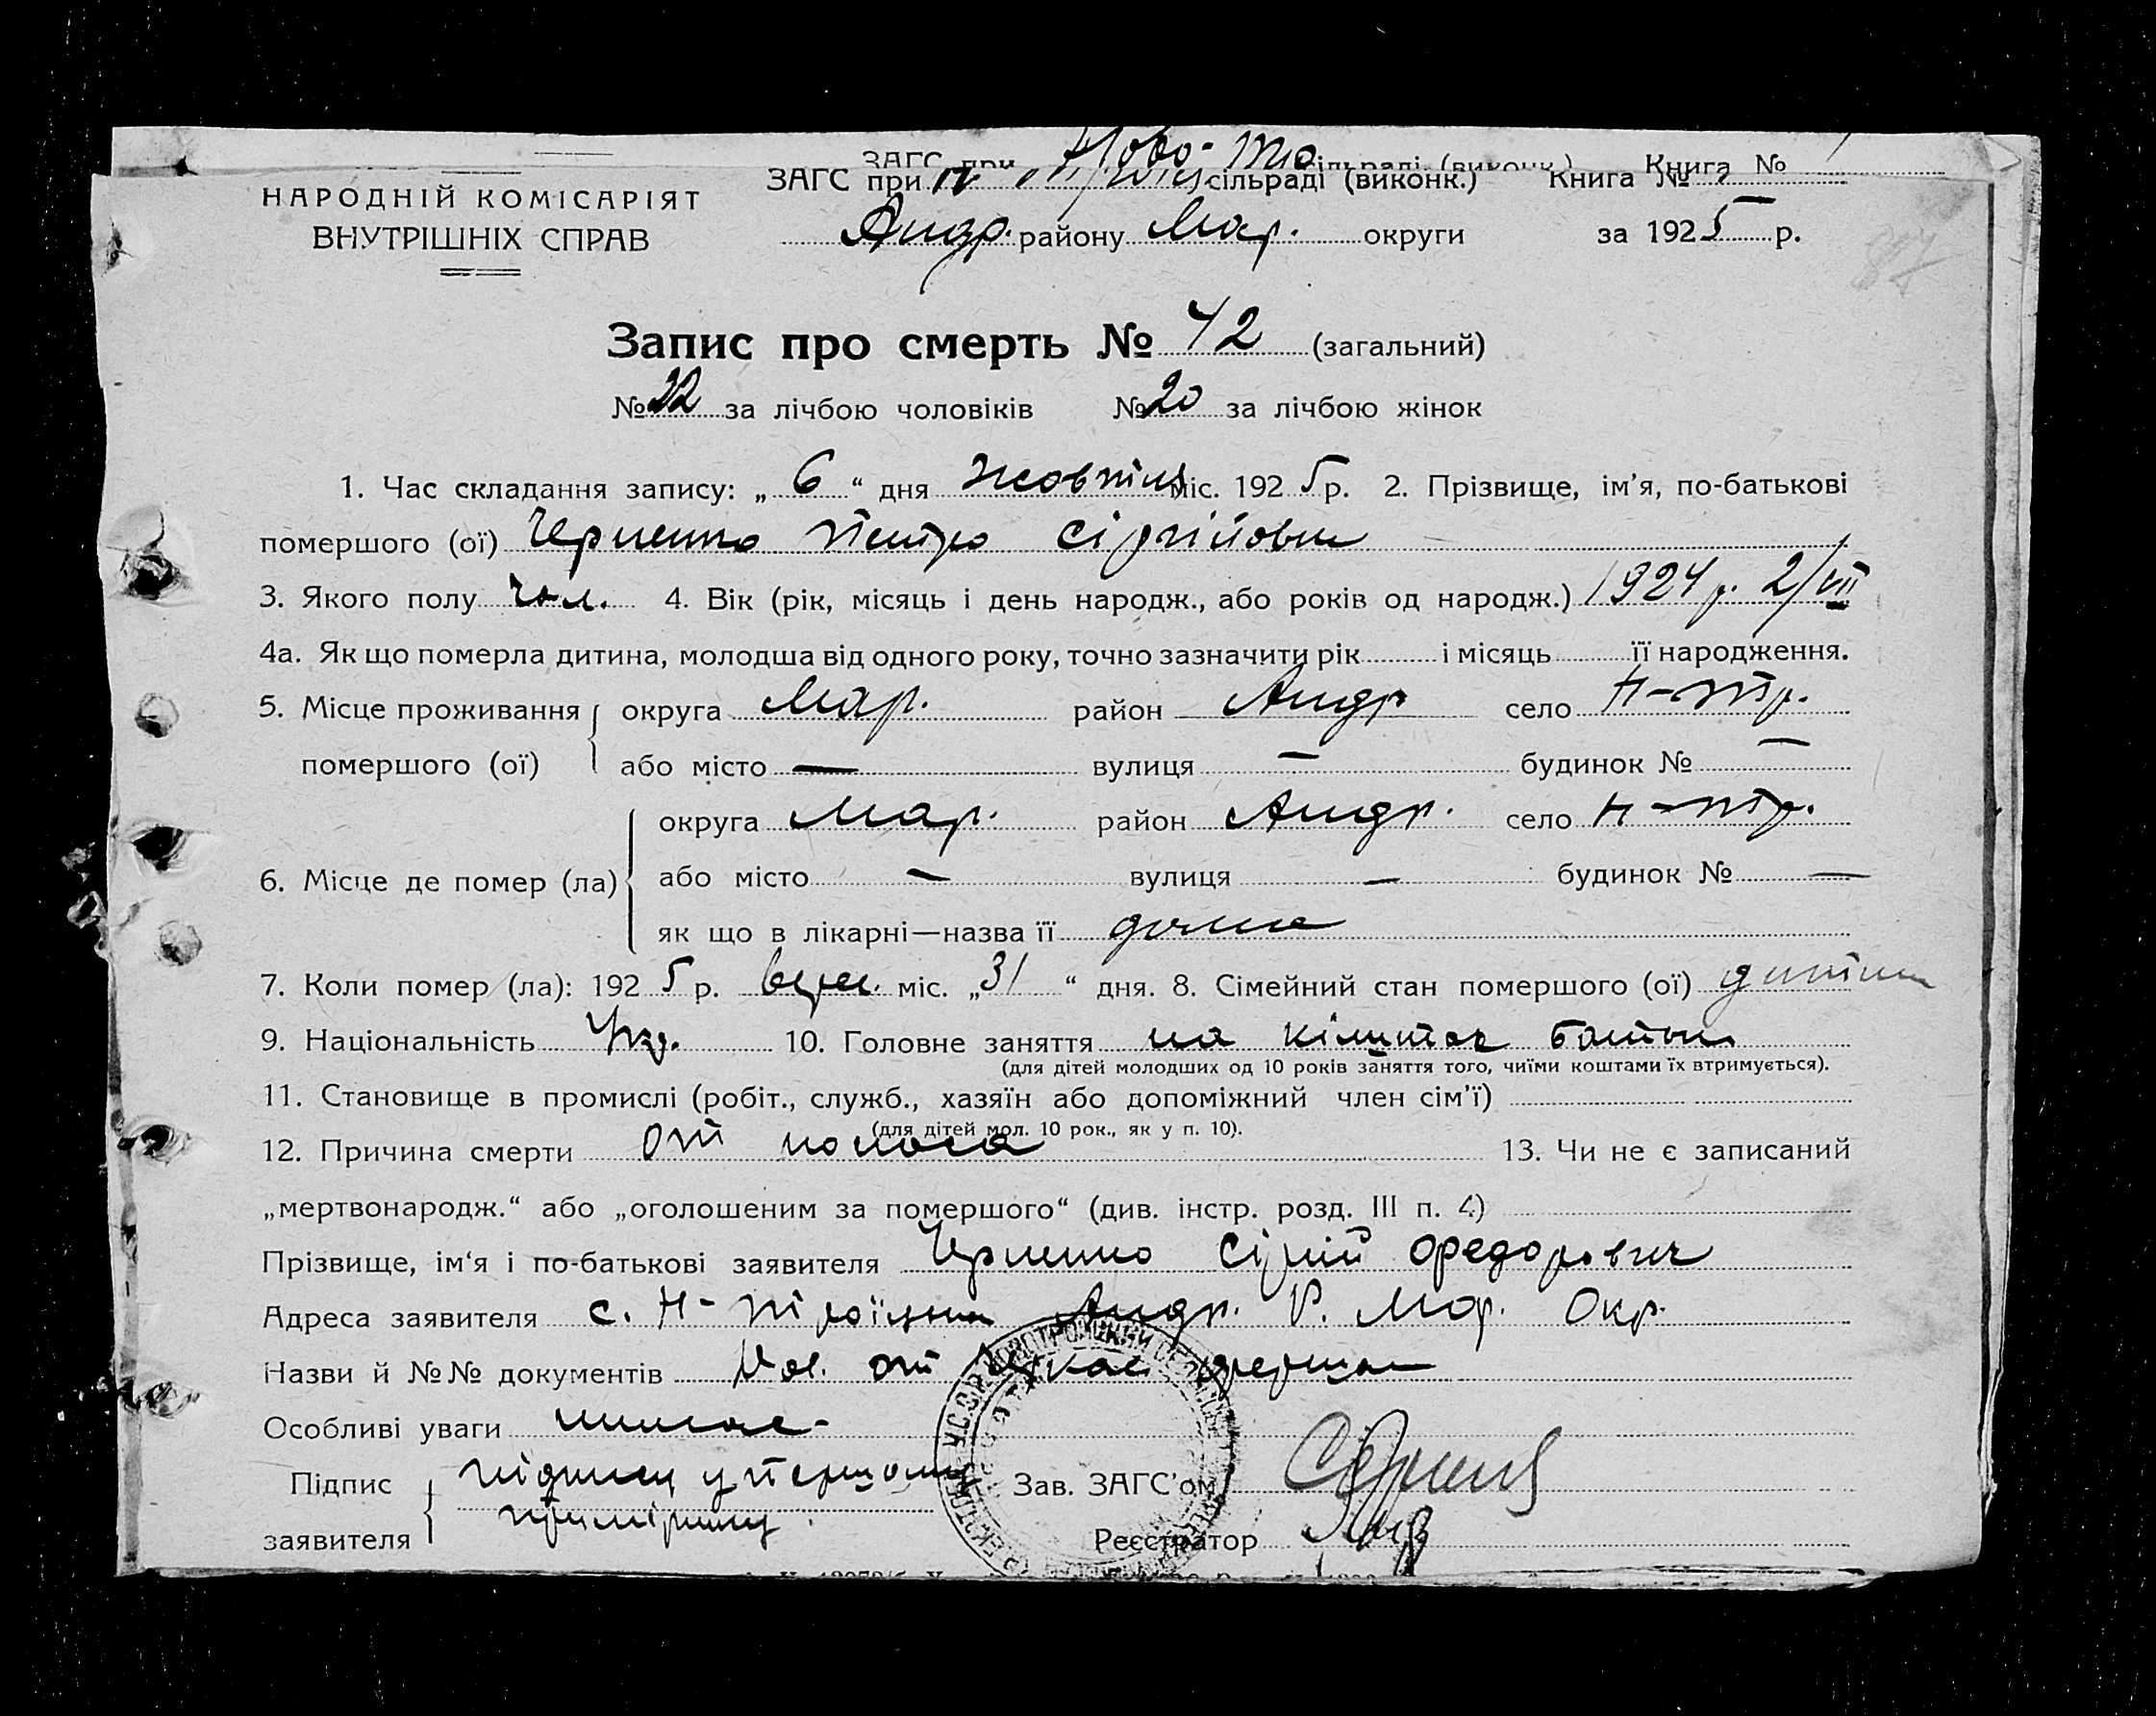 ЗАГС при Ново-Тро сільраді (виконк.) Книга №
НАРОДНІЙ КОМІСАРІЯТ
ВНУТРІШНІХ СПРАВ
ЗАГС при сільраді (виконк.) Книга №
Андр. району Мар. округи за 1925 р.
Запис про смерть № 42 (загальний)
№ 22 за лічбою чоловіків № 20 за лічбою жінок
1. Час складання запису: „ 6 “ дня жовтня міс. 1925 р. 2. Прізвище, ім’я, по-батькові
помершого (ої) Черненко Петро Сіргійович
3. Якого полу чол. 4. Вік (рік, місяць і день народж., або років од народж.) 1924 р. 2/VII
4а. Як що померла дитина, молодша від одного року, точно зазначити рік і місяць її народження.
5. Місце проживання помершого (ої) округа Мар. район Андр село Н-Тр.
або місто — вулиця — будинок № —
6. Місце де помер (ла) округа Мар. район Андр. село Н-Тр.
або місто — вулиця — будинок № —
як що в лікарні—назва її дома
7. Коли помер (ла): 1925 р. міс. „31“ дня. 8. Сімейний стан помершого (ої) дитина
9. Національність Укр. 10. Головне заняття на батьки
(для дітей молодших од 10 років заняття того, чиїми коштами їх втримується).
11. Становище в промислі (робіт., служб., хазяїн або допоміжний член сім’ї)
(для дітей мол. 10 рок., як у п. 10).
12. Причина смерти от поноса 13. Чи не є записаний
„мертвонародж.“ або „оголошеним за помершого“ (див. інстр. розд. III п. 4)
Прізвище, ім‘я і по-батькові заявителя Черненко Сіргій Федорович
Адреса заявителя с. Н-Троїцьки Андр. Р. Мар. Окр.
Назви й №№ документів от
Особливі уваги немає-
Підпис заявителя підписи у першому
примірнику
Зав. ЗАГС’ом
Реєстратор